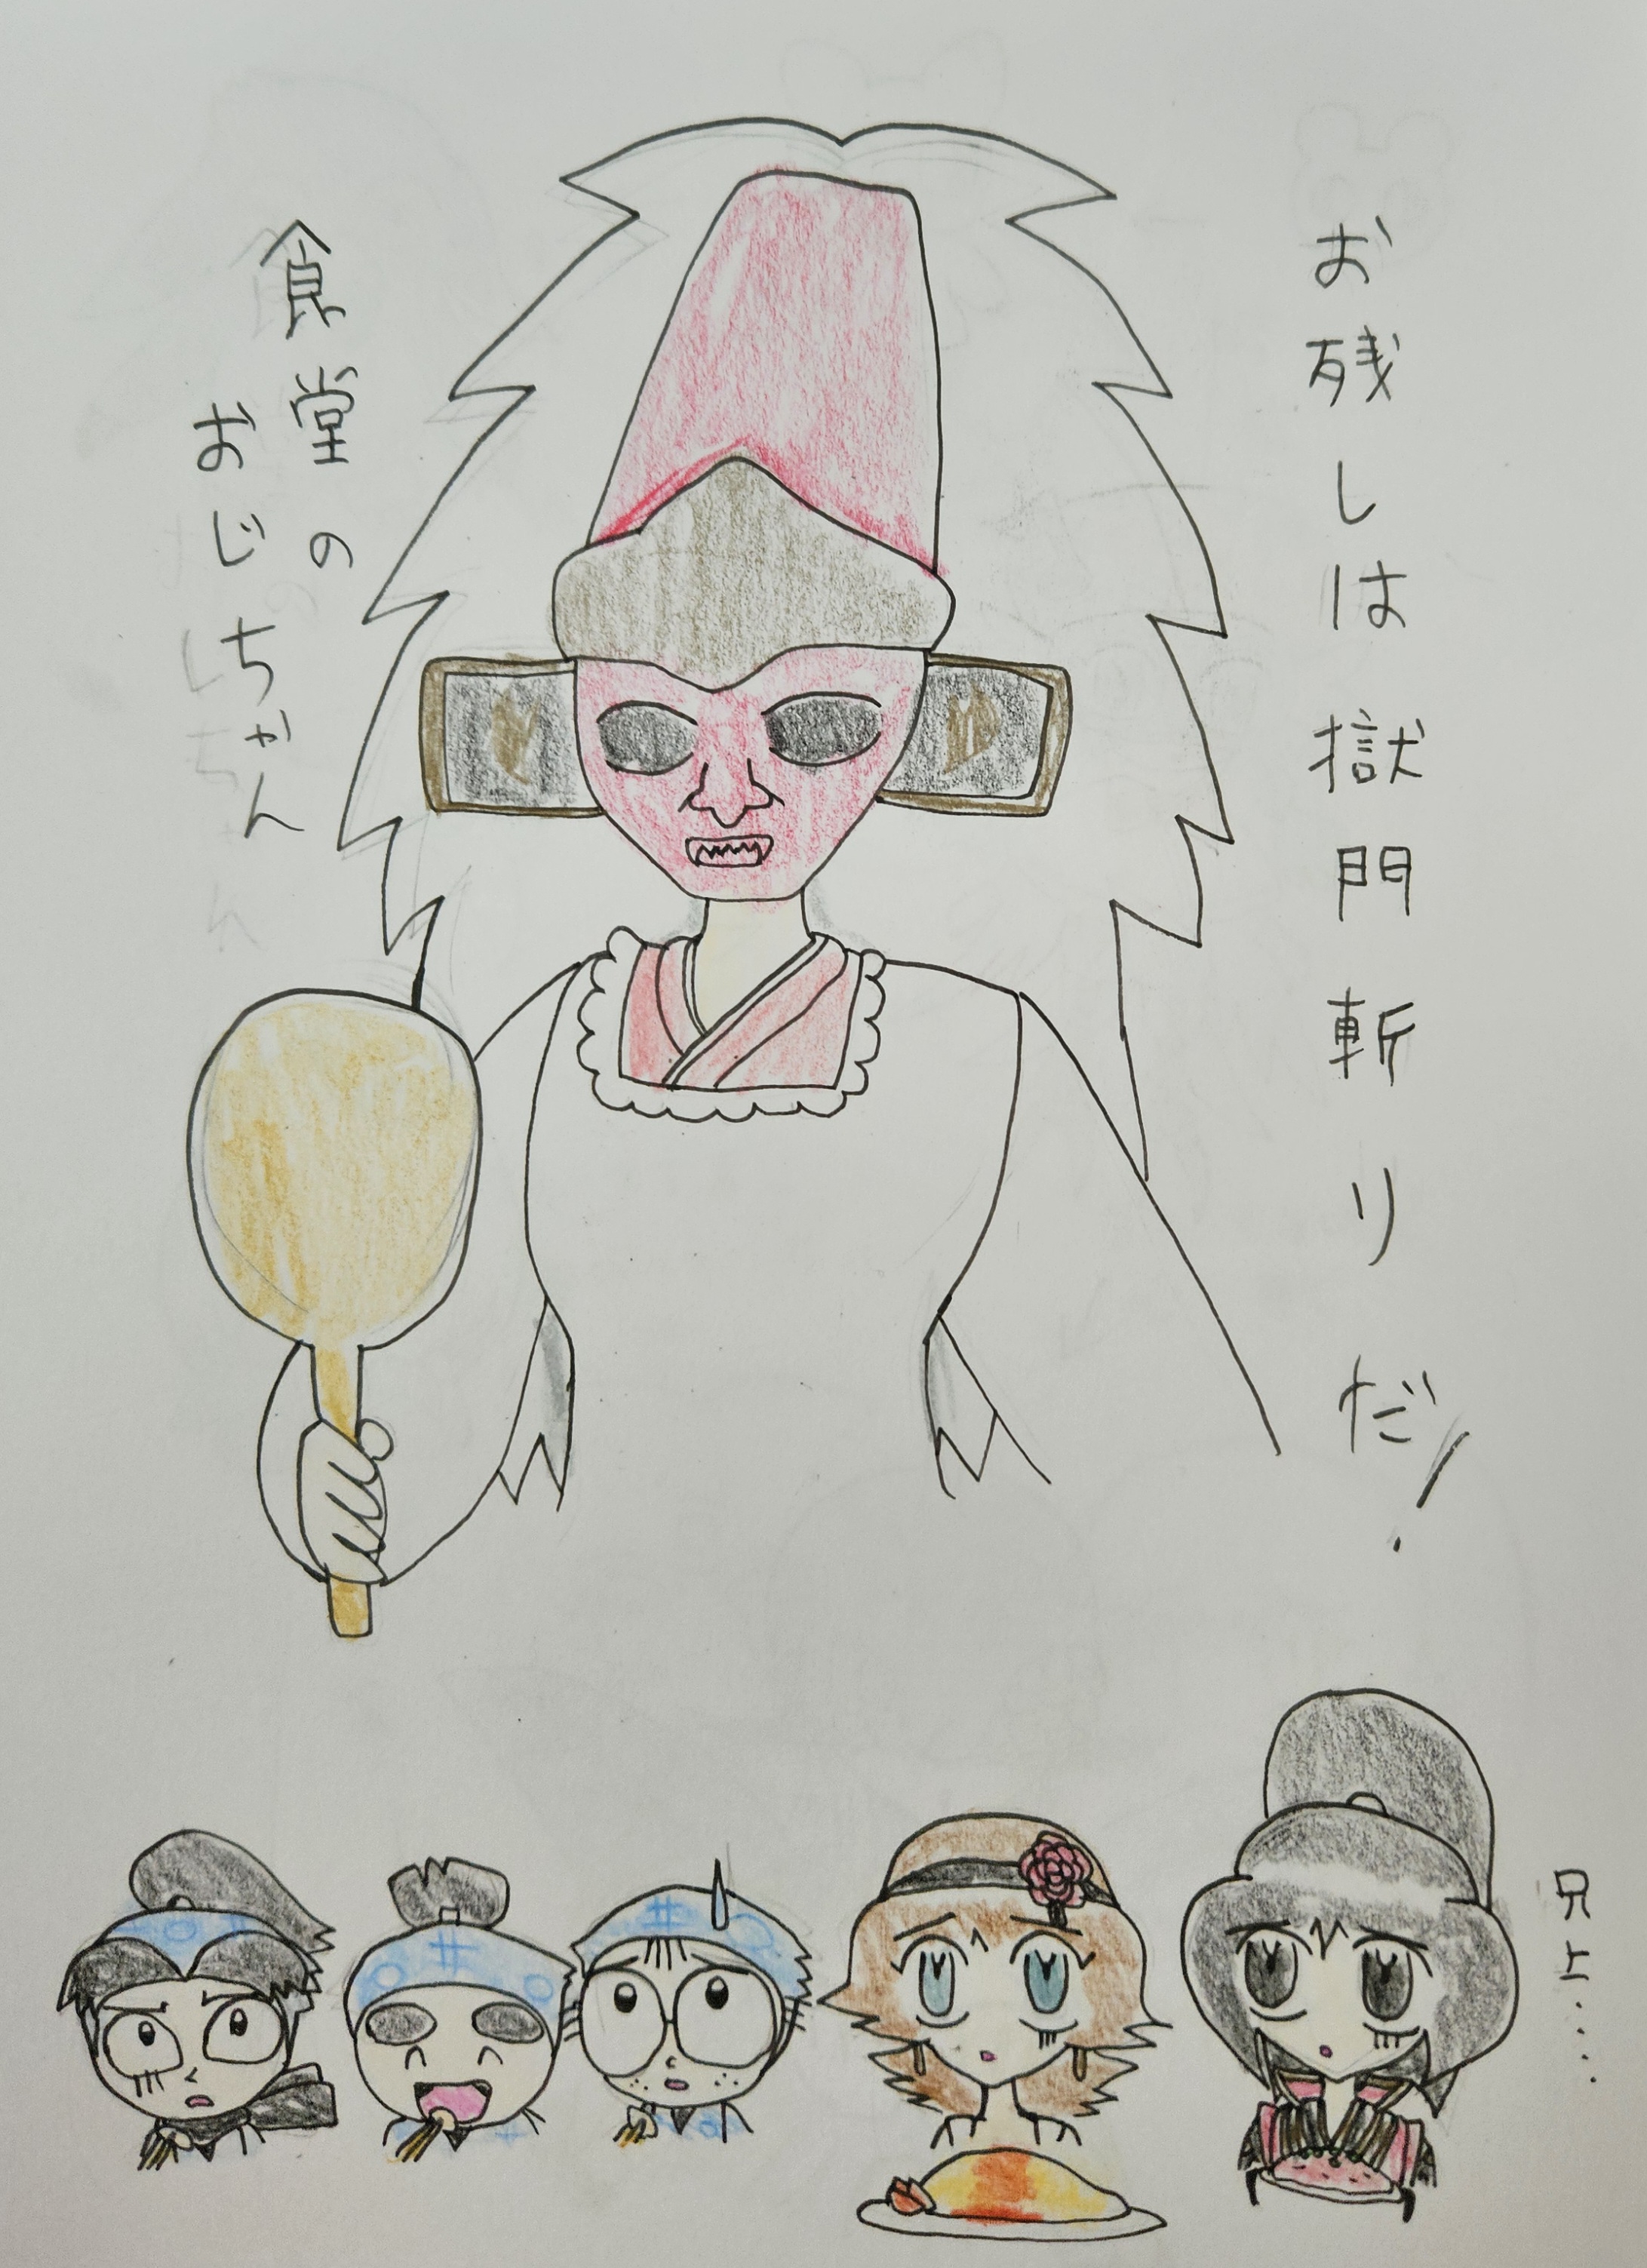 お残しは獄門斬リだ!
食堂の
おじちゃん
兄上……